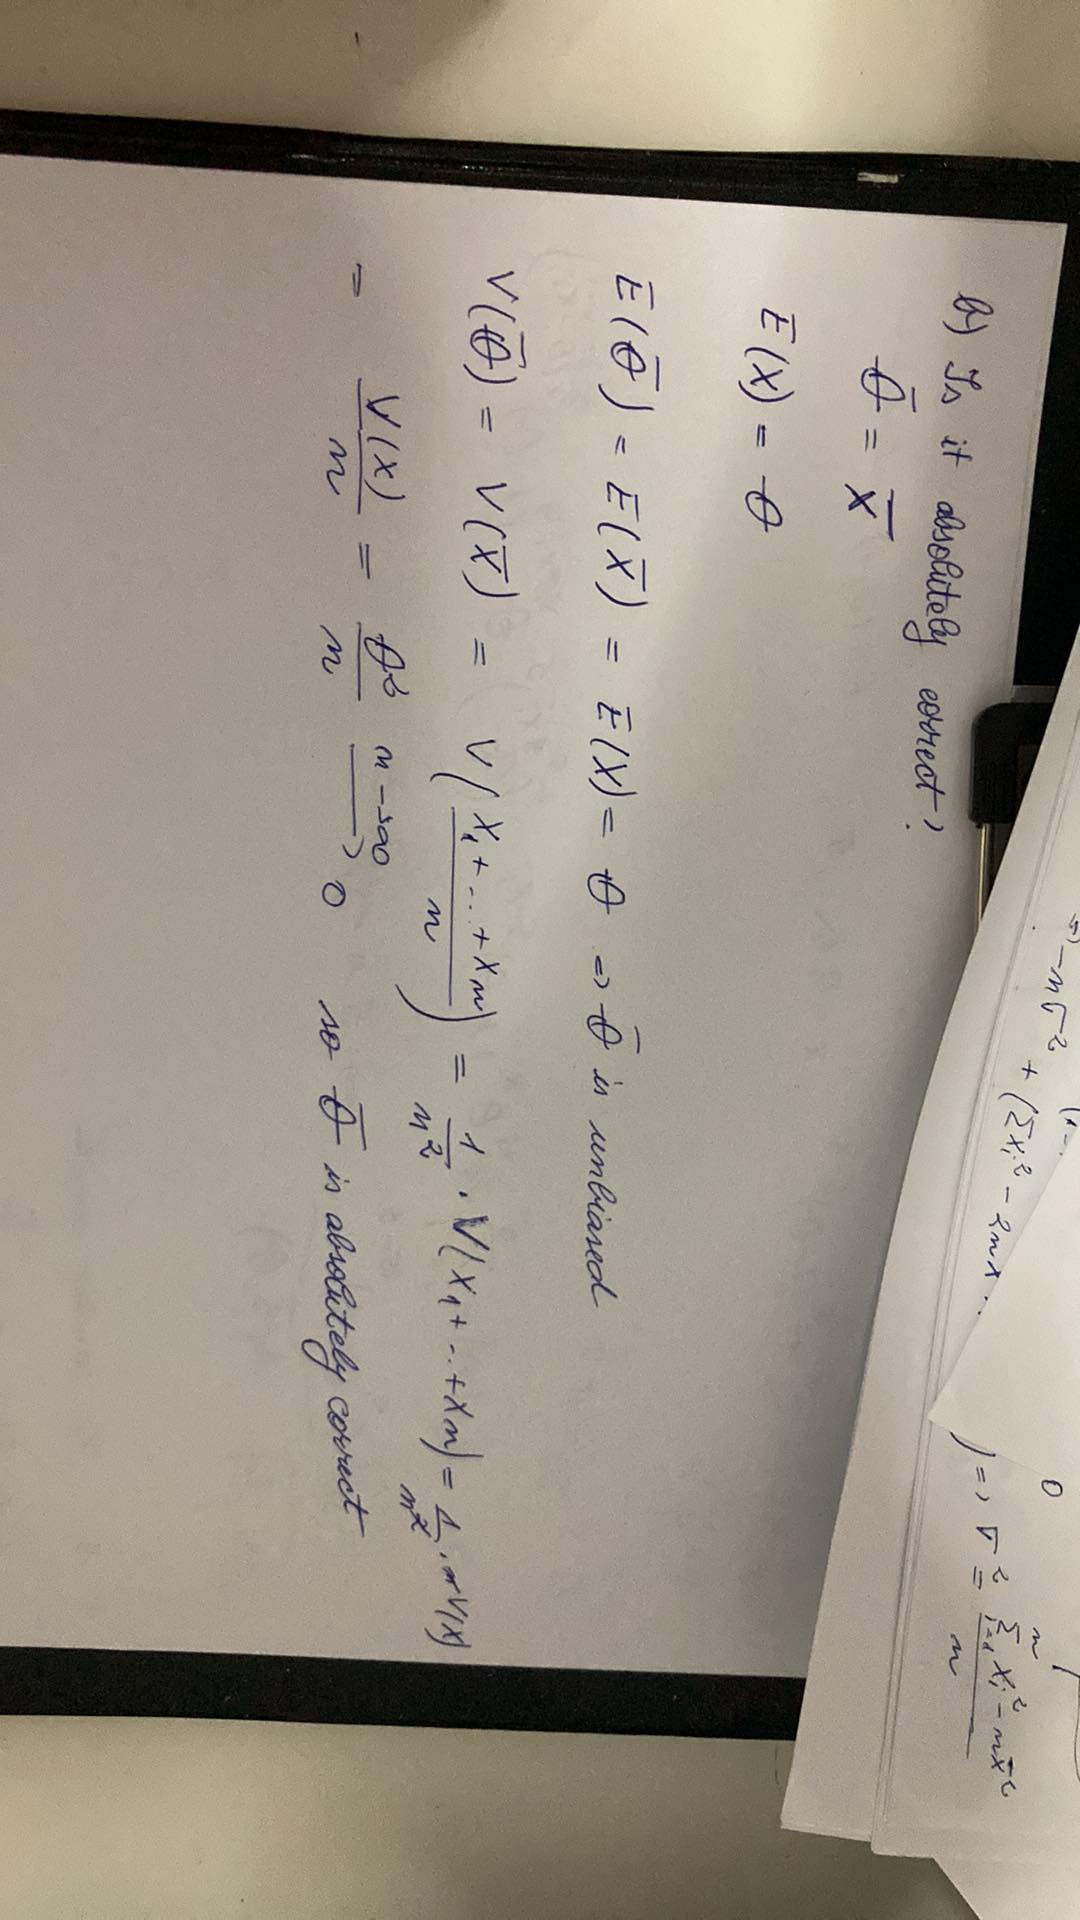 => -nσ² + (Σxi² - 2nx
0
) => σ² = \frac{\sum_{i=1}^{n} xi² - n\bar{x}²}{n}
b) Is it absolutely correct?
θ̄ = X̄
E(X) = θ
E(θ̄) = E(X̄) = E(X) = θ => θ̄ is unbiased
V(θ̄) = V(X̄) = V(\frac{X₁+...+Xn}{n}) = \frac{1}{n²} · V(X₁+...+Xn) = \frac{1}{n²} · nV(X)
= \frac{V(X)}{n} = \frac{θ²}{n} \xrightarrow{n→∞} 0 so θ̄ is absolutely correct